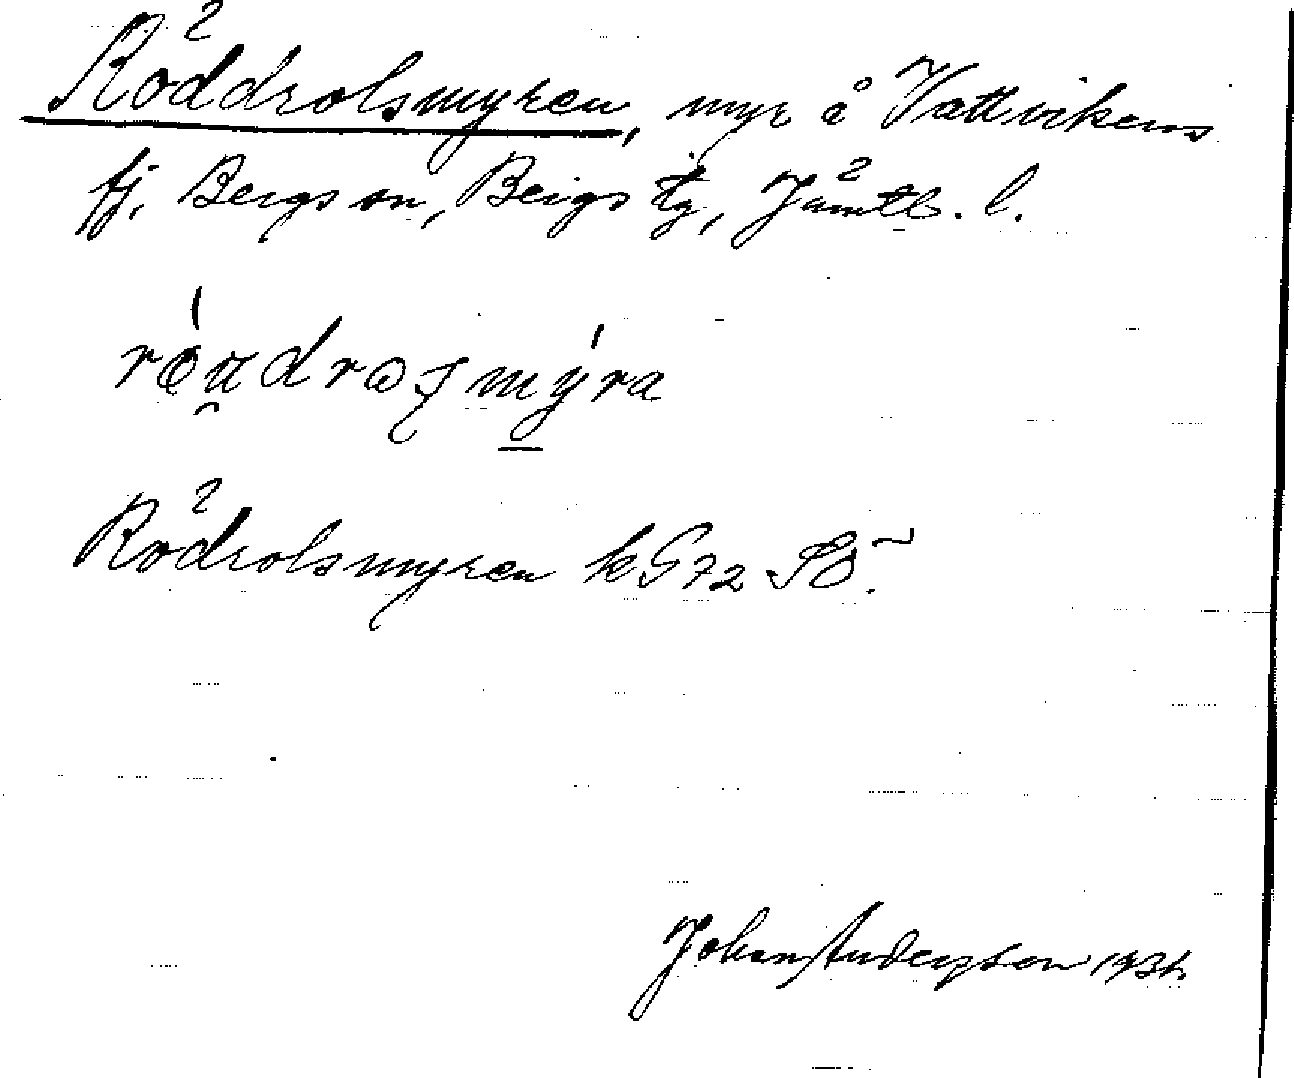 Röddrolsmyren, myr å Vattvikens
fj, Bergs sn, Bergs tg, Jämtl. l.
Rödrolsmyren kG72 SO.
Johan Anderson 1931.